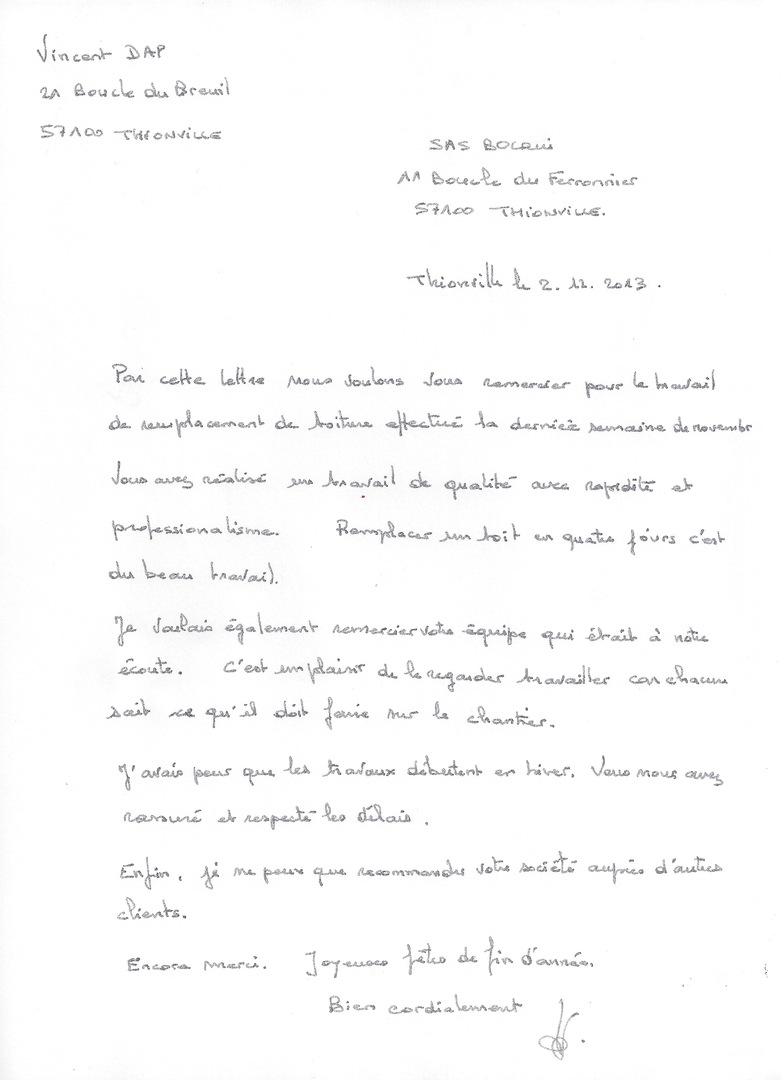 Vincent DAP
21 Boucle du Breuil
57100 THIONVILLE
SAS BOCQUI
11 Boucle du Ferronnier
57100 THIONVILLE.
Thionville le 2. 12. 2013.
Par cette lettre nous voulons vous remercier pour le travail
de remplacement de toiture effectué la dernière semaine de novembr
Vous avez réalisé un travail de qualité avec rapidité et
professionalisme. Remplacer un toit en quatre jours c'est
du beau travail.
Je voulais également remercier votre équipe qui était à notre
écoute. C'est un plaisir de le regarder travailler car chacun
sait ce qu'il doit faire sur le chantier.
J'avais peur que les travaux débutent en hiver. Vous nous avez
rassuré et respecté les délais.
Enfin, je ne peux que recommander votre société auprès d'autres
clients.
Encore merci. Joyeuses fêtes de fin d'année.
Bien cordialement